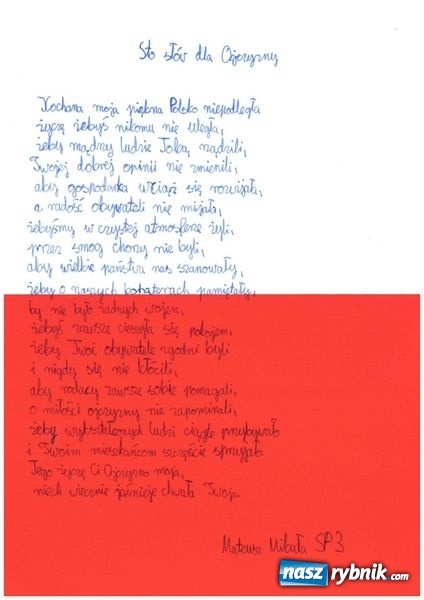 Sto słów dla Ojczyzny
Kochana moja piękna Polsko niepodległa
życzę żebyś nikomu nie uległa,
żeby mądrzy ludzie Tobą rządzili,
Twojej dobrej opinii nie zmienili,
aby gospodarka wciąż się rozwijała,
a radość obywateli nie mijała,
żebyśmy w czystej atmosferze żyli,
przez smog chorzy nie byli,
aby wielkie państwa nas szanowały,
żeby o naszych bohaterach pamiętały,
by nie było żadnych wojen,
żebyś zawsze cieszyła się pokojem,
żeby Twoi obywatele zgodni byli
i nigdy się nie kłócili,
aby rodacy zawsze sobie pomagali,
o miłości ojczyzny nie zapominali,
żeby wykształconych ludzi ciągle przybywało
i Twoim mieszkańcom szczęście sprzyjało.
Tego życzę Ci Ojczyzno moja,
niech wiecznie jaśnieje chwała Twoja.
Mateusz Mikuła SP3
nasz rybnik.com